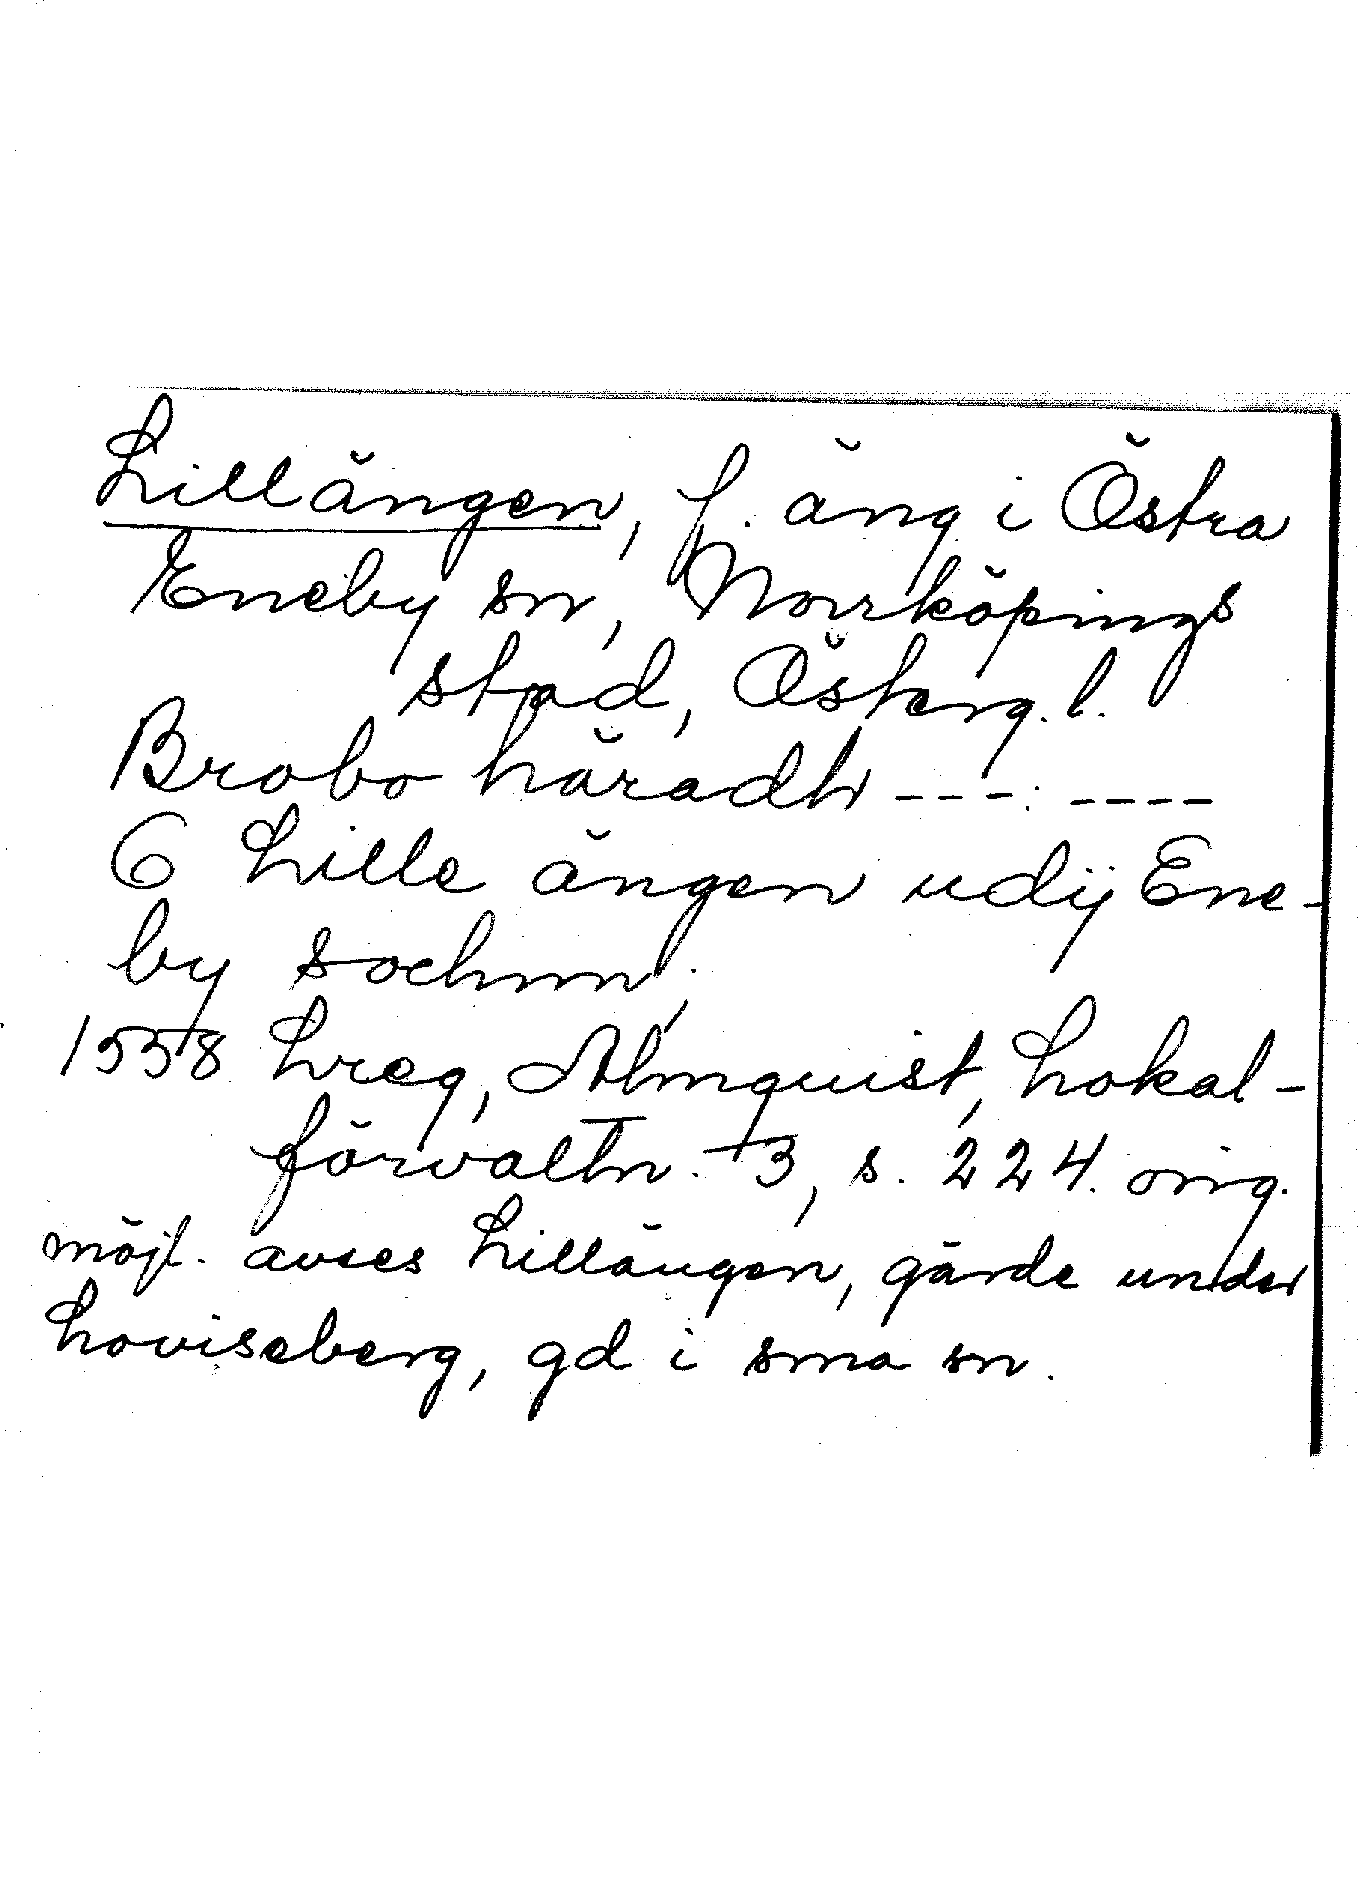 Lillängen, f. äng i Östra
Eneby sn, Norrköpings
stad, Österg. l.
Brobo häradh --- : ----
6 Lille ängen udij Ene-
by sochnn,
1558 Lreg, Almquist, Lokal-
förvaltn. 3, s. 224. orig.
möjl. avses Lillängen, gärde under
Loviseberg, gd i sma sn.